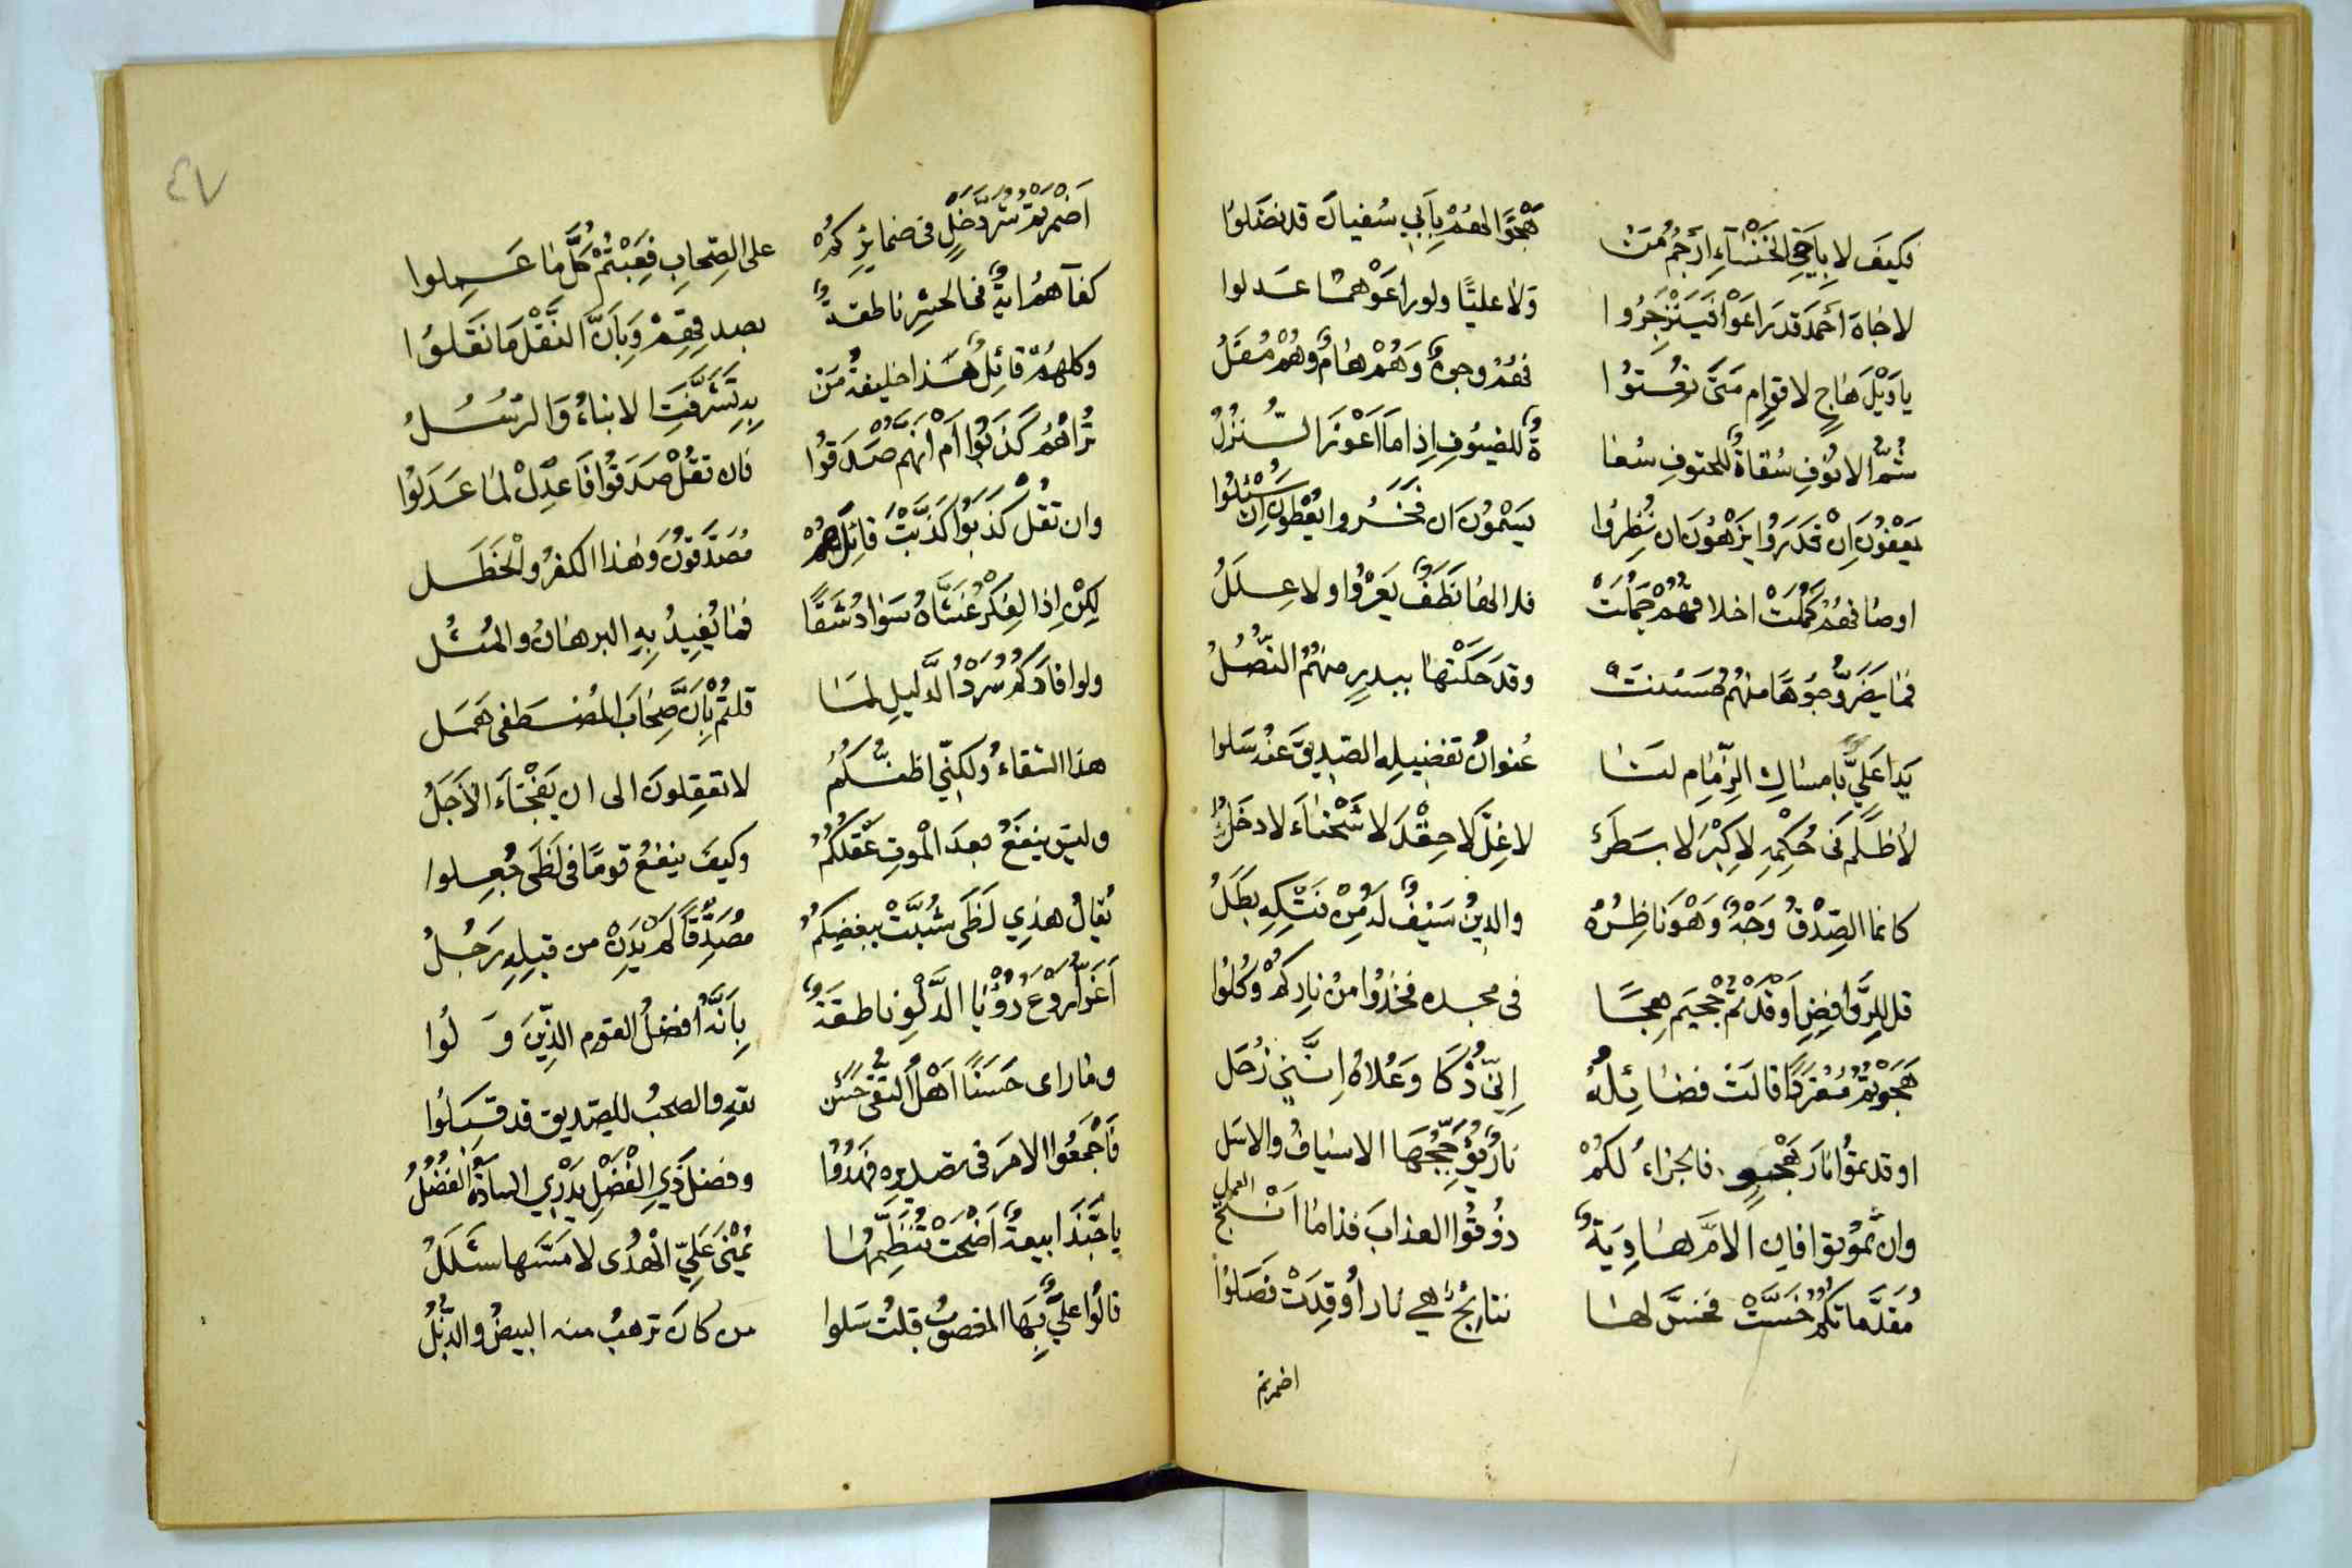 فكيف لا بأخي الخنساء ارجم من هجوا لهم بأبي سفيان قد نضلوا
لا جاه أحمد قد راعوا فينزجروا ولا عليًّا ولو راعوهما عدلوا
يا ويل هاج لاقوام متى نعتوا فهم وجوهٌ وهم هامٌ وهم مقل
شمّ الانوف سقاةٌ للحتوف سقاةٌ للضيوف إذا ما أعوز النزل
يعفون إن قدروا يزهون ان نظروا يسمون ان فخروا يعطون إن سئلوا
اوصافهم كملت اخلاقهم جملت فلا لها نظفٌ يعروا ولا علل
فما يضر وجوهًا منهم حسنت وقد حكتها ببدر منهم النصل
يدا عليّ بامساك الزمام لنا عنوان تفضيله الصديق عنه سلوا
لا ظلم في حكمه لا كبر لا بطر لا غل لا حقد لا شحناء لا دخل
كانما الصدق وجهٌ وهو ناظره والدين سيفٌ له من فتكه بطل
قل للروافض أوقدتم جحيم هجًا في مجده فخذوا من ناركم وكلوا
هجوتم مفردًا قالت فضائله إني ذكا وعلاه إنني زحل
اوقدتموا نار هجو فالجزاء لكم نارٌ تؤججها الاسياف والاسل
وان تموتوا فان الام هاويةٌ ذوقوا العذاب فذا ما انتج العمل
مقدماتكم خست فخس لها نتائجٌ هي نار أوقدت فصلوا
اضمرتم
٤٧
اضمرتم شر دخل في ضمائركم على الصحاب فعبتم كل ما عملوا
كفاهم ايةٌ في الحشر ناطقةٌ بصدقهم وبأن النقل ما نقلوا
وكلهم قائلٌ هذا خليفة من به تشرفت الانباء والرسل
تراهم كذبوا أم انهم صدقوا فان تقل صدقوا فاعدل لما عدلوا
وان تقل كذبوا كذبت قائلهم مصدقون وهذا الكفر والخطل
لكن إذا الفكر غشاه سواد شقًا فما يفيد به البرهان والمثل
ولو افادكم سرد الدليل لما قلتم بأن صحاب المصطفى همل
هذا الشقاء ولكني اظنكم لا تعقلون الى ان يفجأ الأجل
وليس ينفع بعد الموت عقلكم وكيف ينفع قومًا في لظى جعلوا
يقال هذي لظى شبت ببغضكم مصدقًا لم يدن من قبله رجل
أغر أروع رؤيا الدلو ناطقةٌ بأنه أفضل القوم الذين ولوا
وما راى حسنًا اهل التقى حسن تقه والصحب للصديق قد قبلوا
فأجمعوا الامر في تصديره فهدوا وفضل ذي الفضل يدري السادة الفضل
يا حبذا بيعةٌ اضحت تنظمها يمنى علي الهدى لا مسها شلل
قالوا عليٌّ بها المغصوب قلت سلوا من كان ترهب منه البيض والذبل